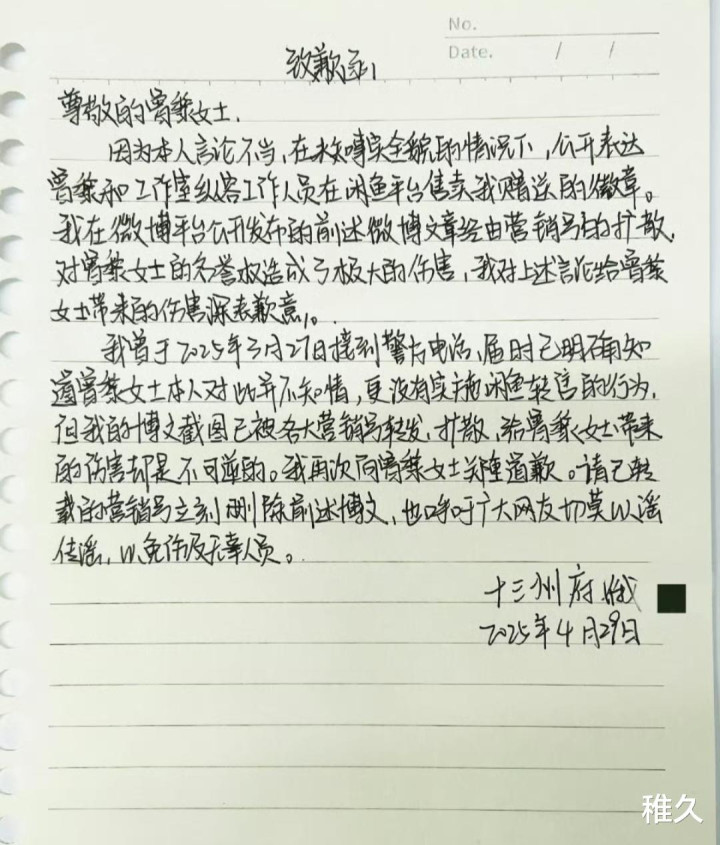 No.
Date. / /
致歉函
尊敬的曾黎女士.
因为本人言论不当,在未知事实全貌的情况下,公开表达
曾黎和工作室纵容工作人员在闲鱼平台售卖我赠送的徽章。
我在微博平台公开发布的前述微博文章经由营销号的扩散,
对曾黎女士的名誉权造成了极大的伤害,我对上述言论给曾黎
女士带来的伤害深表歉意。
我曾于2025年3月27日接到警方电话,届时已明确知
道曾黎女士本人对此并不知情,更没有实施闲鱼转售的行为,
但我的博文截图已被各大营销号转发、扩散,给曾黎女士带来
的伤害却是不可逆的。我再次向曾黎女士郑重道歉。请已转
载的营销号立刻删除前述博文,也呼吁广大网友切莫以谣
传谣,以免伤及无辜人员。
十三州府
2025年4月29日
稚久